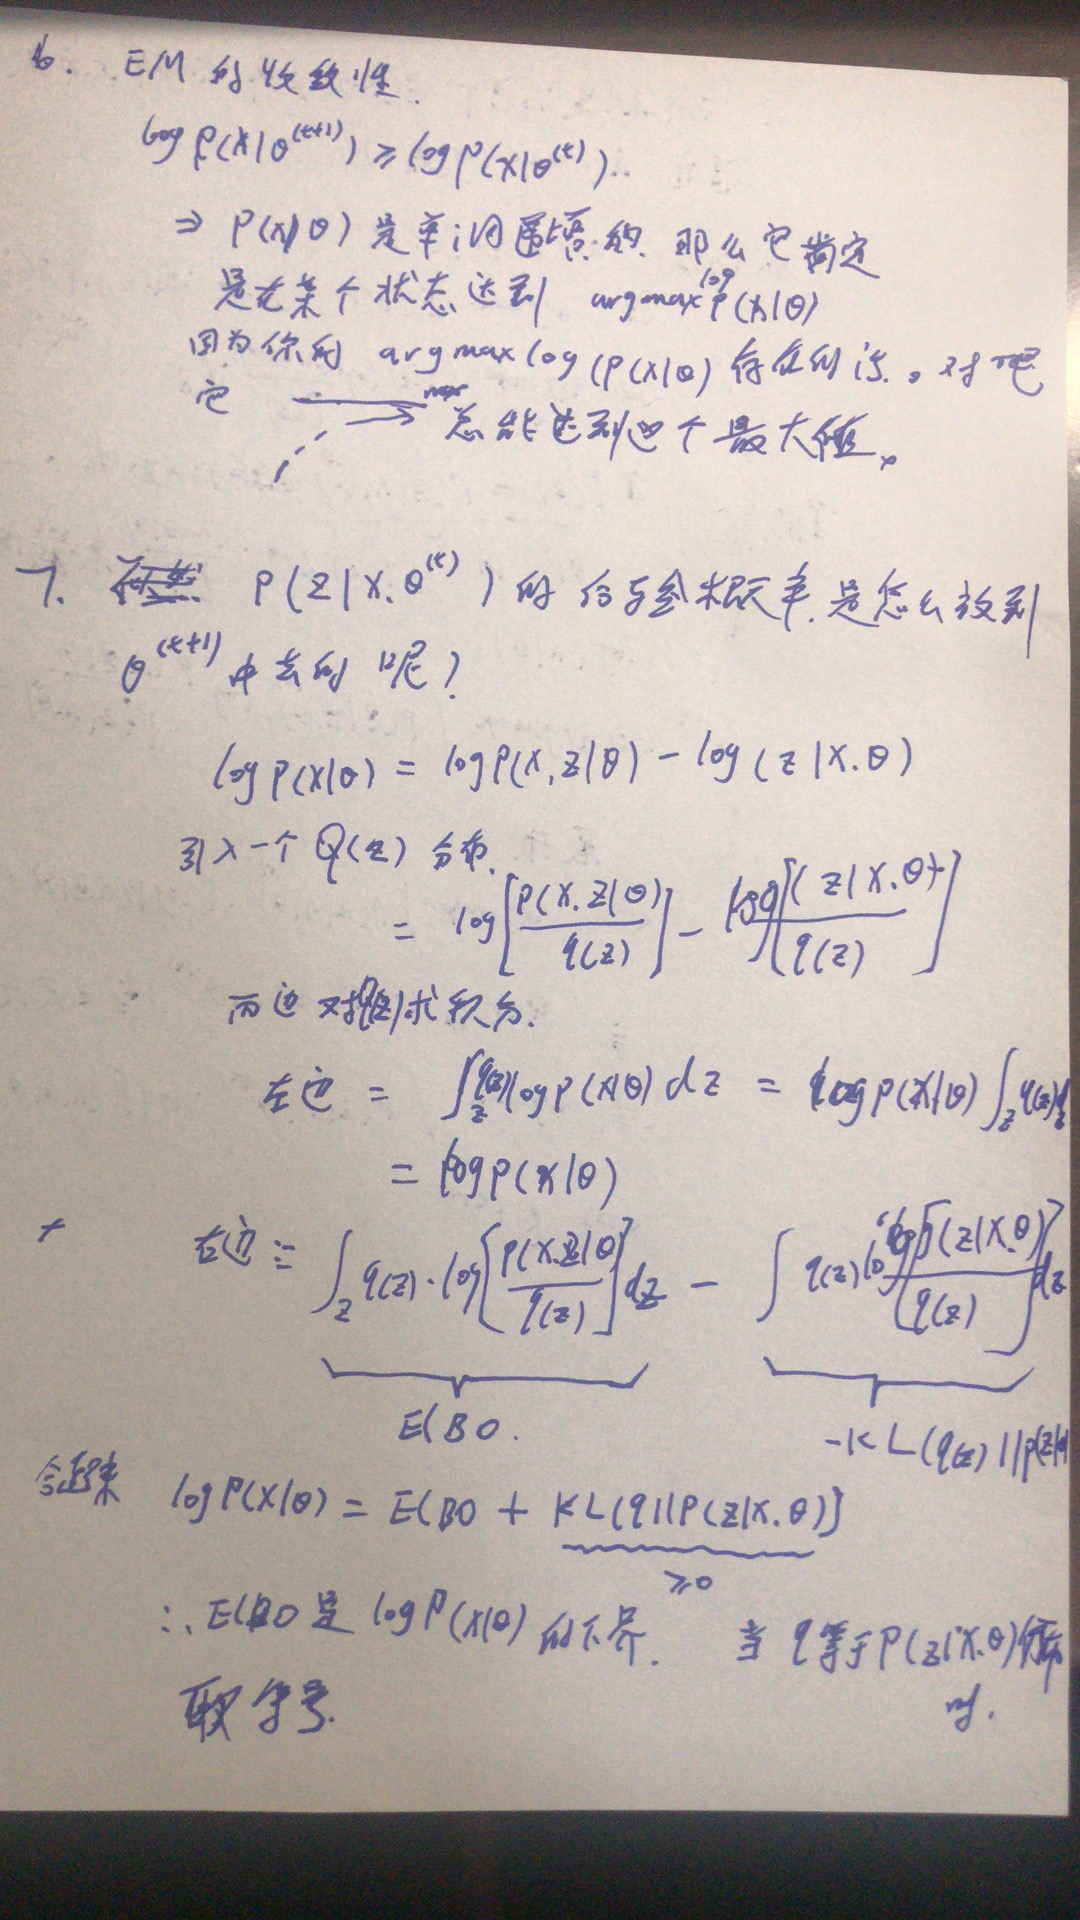 6. EM的收敛性.
log P(X|θ^(t+1)) ≥ log P(X|θ^(t))..
⇒ P(X|θ) 是单调递增的. 那么它肯定
是在某个状态达到 argmax log P(X|θ)
因为你的 argmax log (P(X|θ) 存在的话. 。对吧
它 max 总能达到这个最大值。
7. P(Z|X.θ^(t)) 的 概率.是怎么放到
θ^(t+1) 中去的呢?
log P(X|θ) = log P(X,Z|θ) - log (Z|X.θ)
引入一个 Q(z) 分布.
= log [P(X.Z|θ) / q(z)] - log [(Z|X.θ) / q(z)]
两边对q(z)求积分.
左边 = ∫_z q(z) log P(X|θ) dz = log P(X|θ) ∫_z q(z) dz
= log P(X|θ)
右边 = ∫_z q(z)·log [P(X.Z|θ) / q(z)] dz - ∫ q(z) log [P(Z|X.θ) / q(z)] dz
ELBO. -KL(q(z)||P(Z|X
合起来 log P(X|θ) = ELBO + KL(q||P(Z|X.θ))
≥0
∴ ELBO 是 log P(X|θ) 的下界. 当 q等于P(Z|X.θ)
取等号. 时.